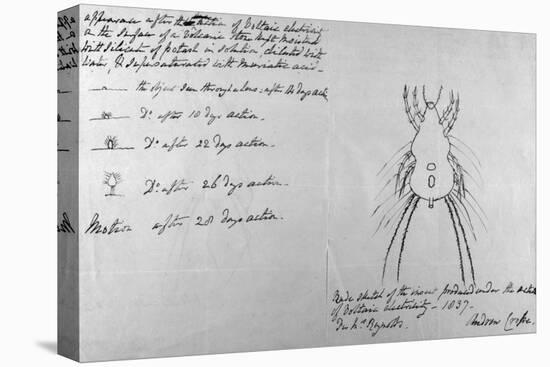 appearance after the action of Voltaic electricity
on the surface of a volcanic stone kept moistened
with silicate of potash in solution, diluted with
water, & supersaturated with muriatic acid -
the object seen through a lens after 14 days action
Do after 18 days action.
Do after 22 days action.
Do after 26 days action.
Motion after 28 days action.
Rude sketch of the insect produced under the action
of Voltaic electricity - 1837.
Reynolds.
Andrew Crosse.